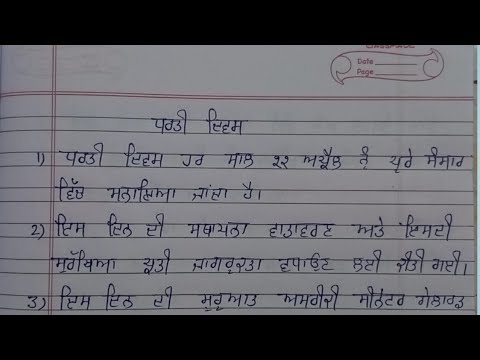 CLASSMATE
Date
Page
ਧਰਤੀ ਦਿਵਸ
1) ਧਰਤੀ ਦਿਵਸ ਹਰ ਸਾਲ 22 ਅਪ੍ਰੈਲ ਨੂੰ ਪੂਰੇ ਸੰਸਾਰ
ਵਿੱਚ ਮਨਾਇਆ ਜਾਂਦਾ ਹੈ।
2) ਇਸ ਦਿਨ ਦੀ ਸਥਾਪਨਾ ਵਾਤਾਵਰਣ ਅਤੇ ਇਸਦੀ
ਸੁਰੱਖਿਆ ਪ੍ਰਤੀ ਜਾਗਰੂਕਤਾ ਵਧਾਉਣ ਲਈ ਕੀਤੀ ਗਈ।
3) ਇਸ ਦਿਨ ਦੀ ਸ਼ੁਰੂਆਤ ਅਮਰੀਕੀ ਸੀਨੇਟਰ ਗੇਲਾਰਡ